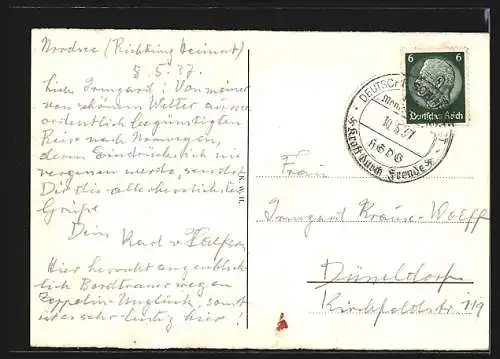 Nordsee (Richtung Heimat)
8.5.37.
Liebe Irmgard! Von meiner
von schönem Wetter ausser-
ordentlich begünstigten
Reise nach Norwegen,
deren Eindrücke ich nie
vergessen werde, sendet
Dir die allerherzlichsten
Grüße
Dein Karl v.
Hier herrscht augenblick-
lich Bordtrauer wegen
Zeppelin-Unglück, sonst
ist es sehr lustig hier!
K. W. H.
6 6
Deutsches Reich
DEUTSCHE
10.5.37
Kraft durch Freude
Frau
Irmgard Krause-Wolff
Düsseldorf
Kirchfeldstr. 119